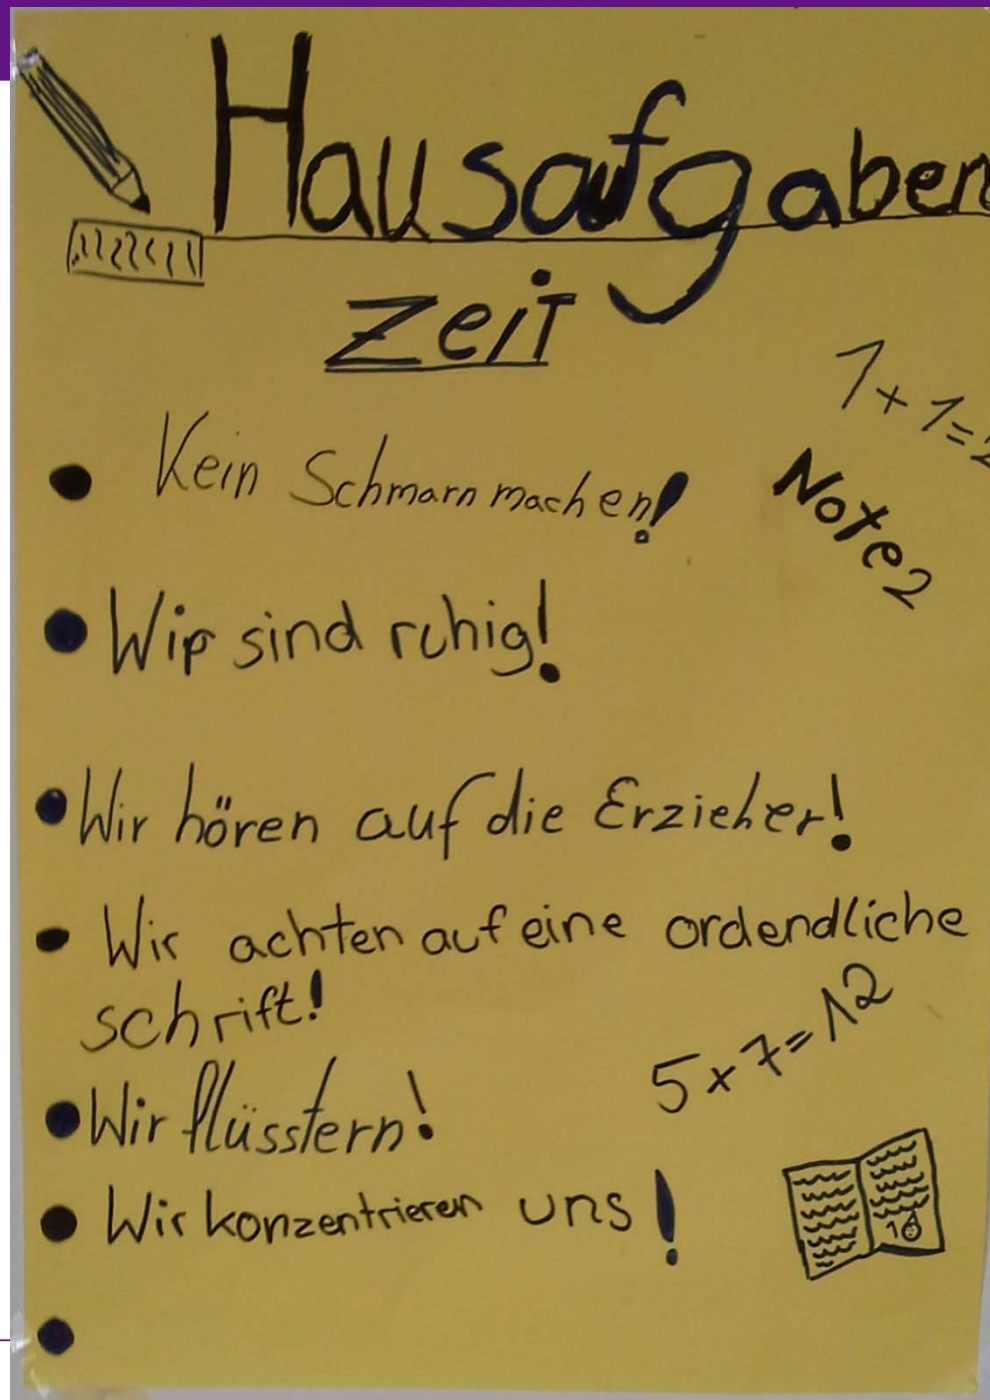 Hausaufgaben
Zeit
1+1=2
Note2
Kein Schmarn machen!
Wir sind ruhig!
Wir hören auf die Erzieher!
Wir achten auf eine ordendliche
schrift!
5x7=12
Wir flüsstern!
Wir konzentrieren uns!